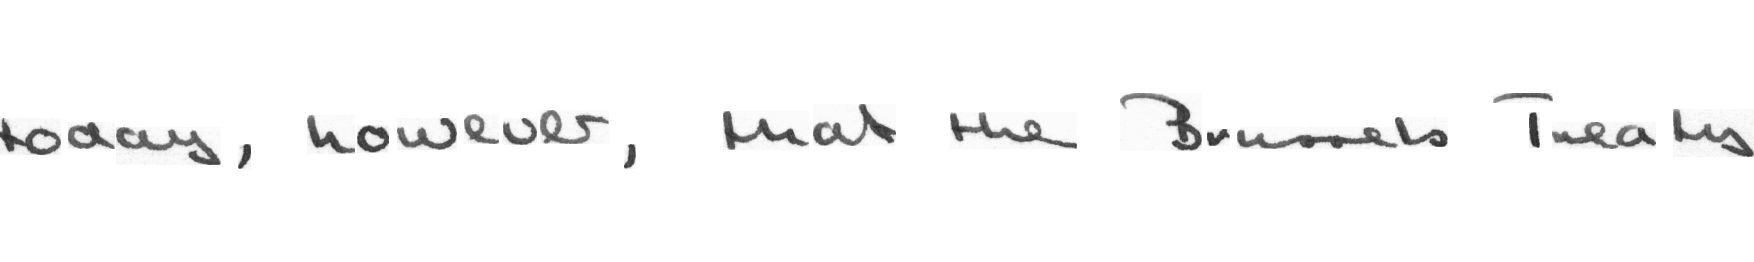 today, however, that the Brussels Treaty